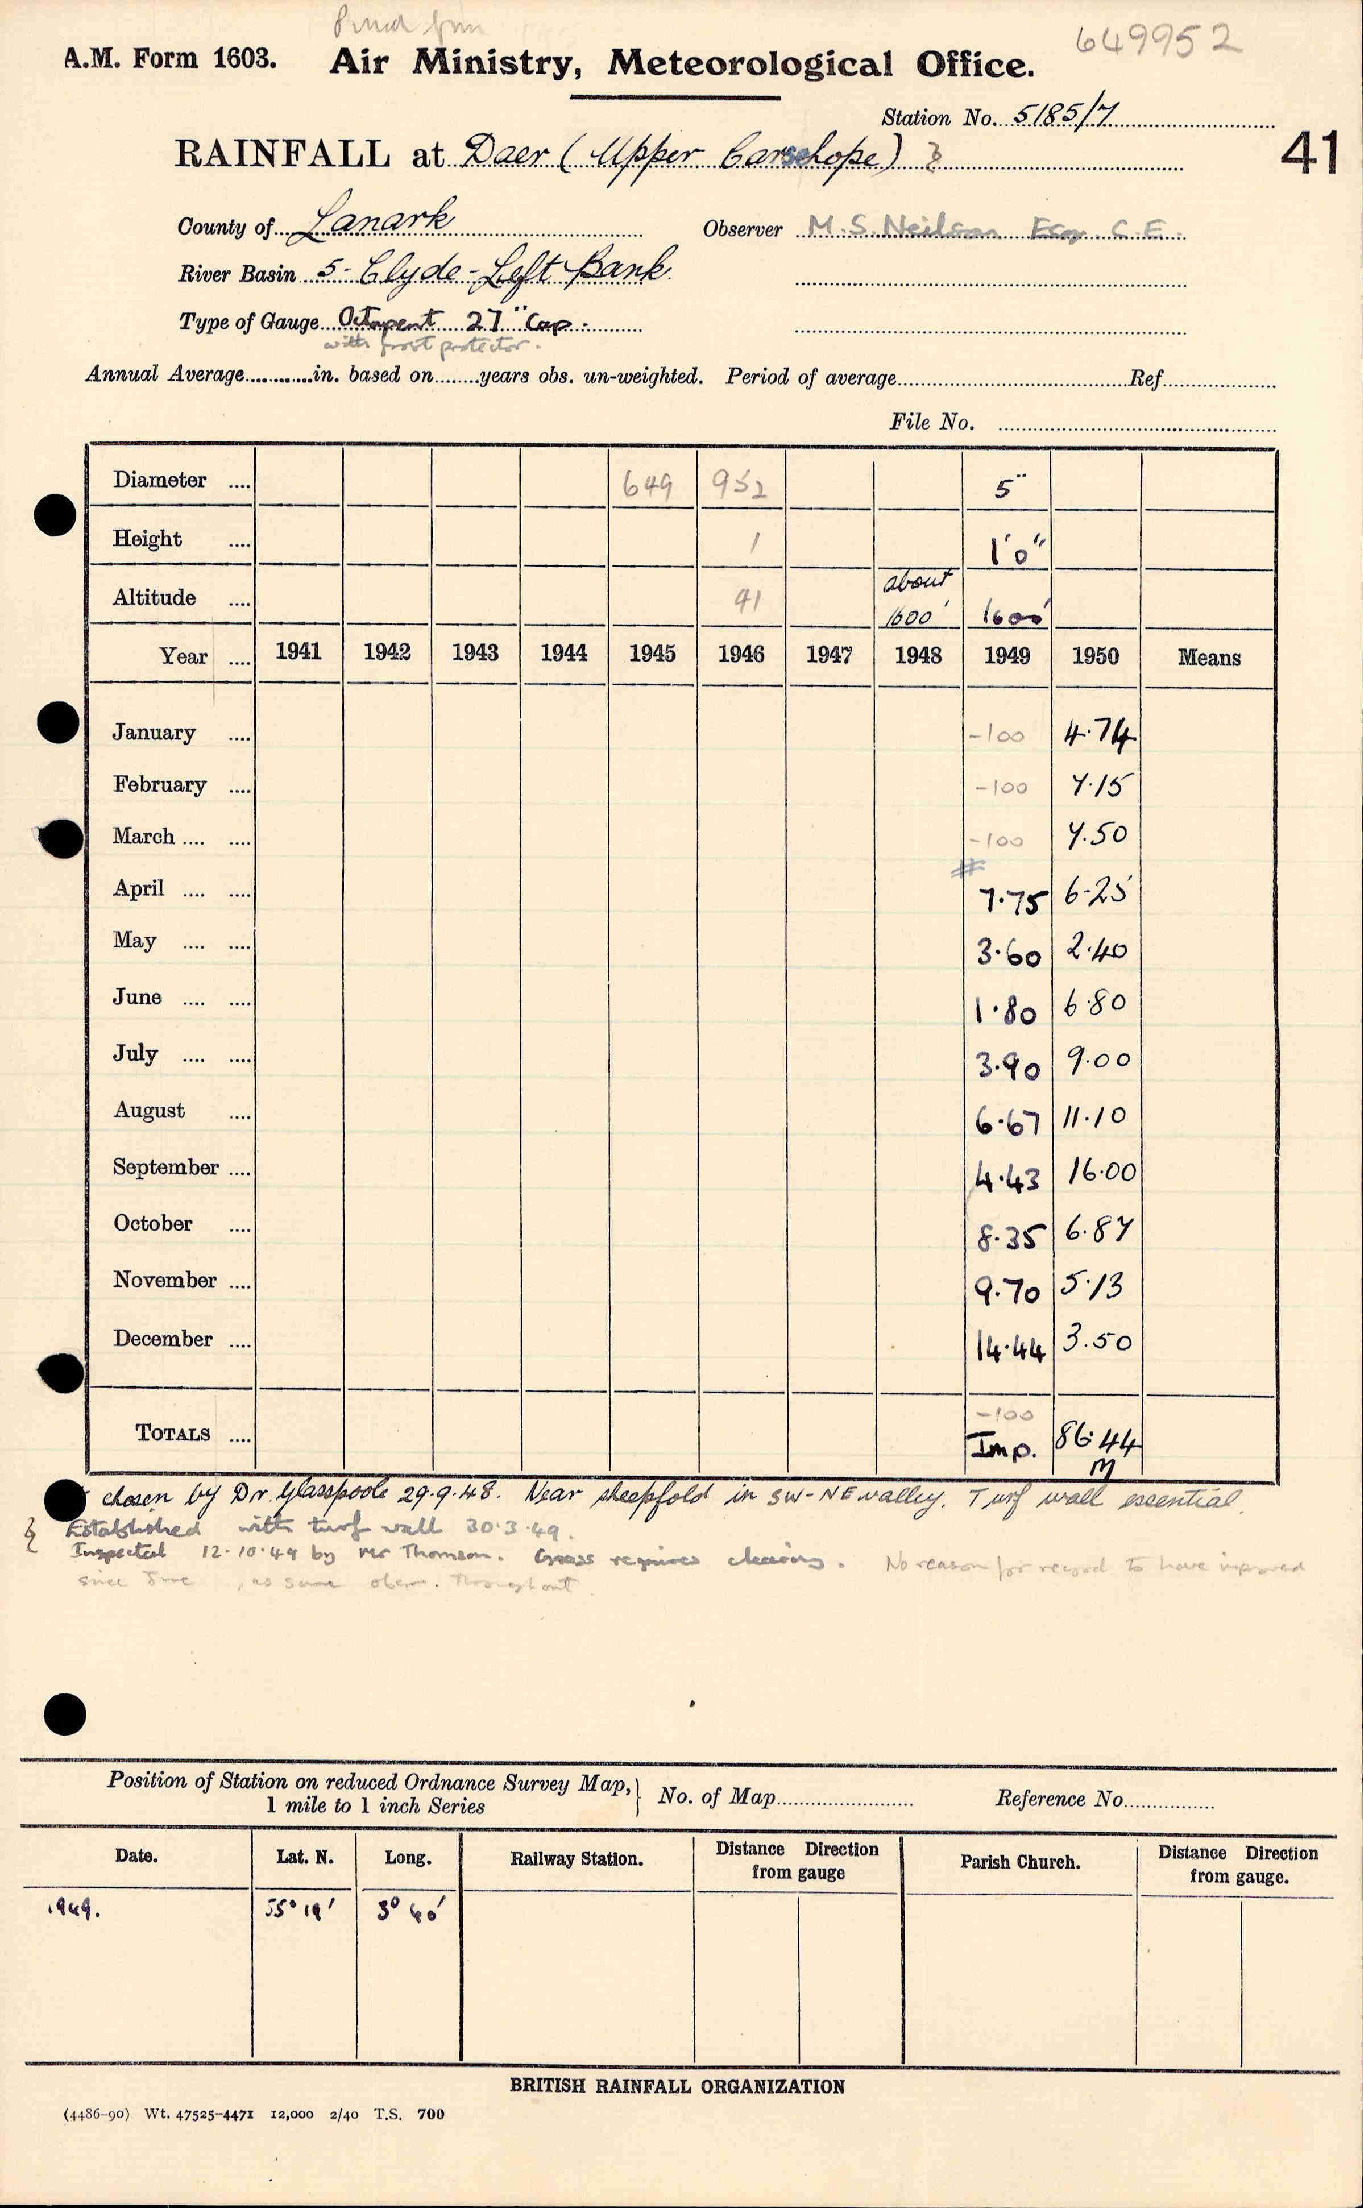 649952
A.M. Form 1603. Air Ministry, Meteorological Office.
Station No. 5185/7
RAINFALL at Daer (Upper Carsehope)
41
County of Lanark Observer M.S. Neilson Esq. C.E.
River Basin 5-Clyde-Left Bank
Type of Gauge Octapent 27" Cap.
with frost protector.
Annual Average............in. based on........years obs. un-weighted. Period of average.......... Ref..........
File No. ..........
Diameter .... 649 952 5"
Height .... 1 1'0"
Altitude .... 41 about 1600' 1600'
Year .... 1941 1942 1943 1944 1945 1946 1947 1948 1949 1950 Means
January .... -100 4.74
February .... -100 7.15
March .... .... -100 7.50
#
April .... .... 7.75 6.25
May .... .... 3.60 2.40
June .... .... 1.80 6.80
July .... .... 3.90 9.00
August .... 6.67 11.10
September .... 4.43 16.00
October .... 8.35 6.87
November .... 9.70 5.13
December .... 14.44 3.50
-100
TOTALS .... Imp. 86.44
M
chosen by Dr. Glasspoole 29.9.48. Near sheepfold in SW-NE valley. Turf wall essential
Established with turf wall 30.3.49.
Inspected 12.10.49 by Mr Thomson. Grass requires clearing. No reason for record to have improved
since June, as same obsr. throughout.
Position of Station on reduced Ordnance Survey Map, 1 mile to 1 inch Series } No. of Map.......... Reference No..........
Date. Lat. N. Long. Railway Station. Distance Direction from gauge Parish Church. Distance Direction from gauge.
1949. 55° 19' 3° 40'
BRITISH RAINFALL ORGANIZATION
(4486-90) Wt. 47525-4471 12,000 2/40 T.S. 700